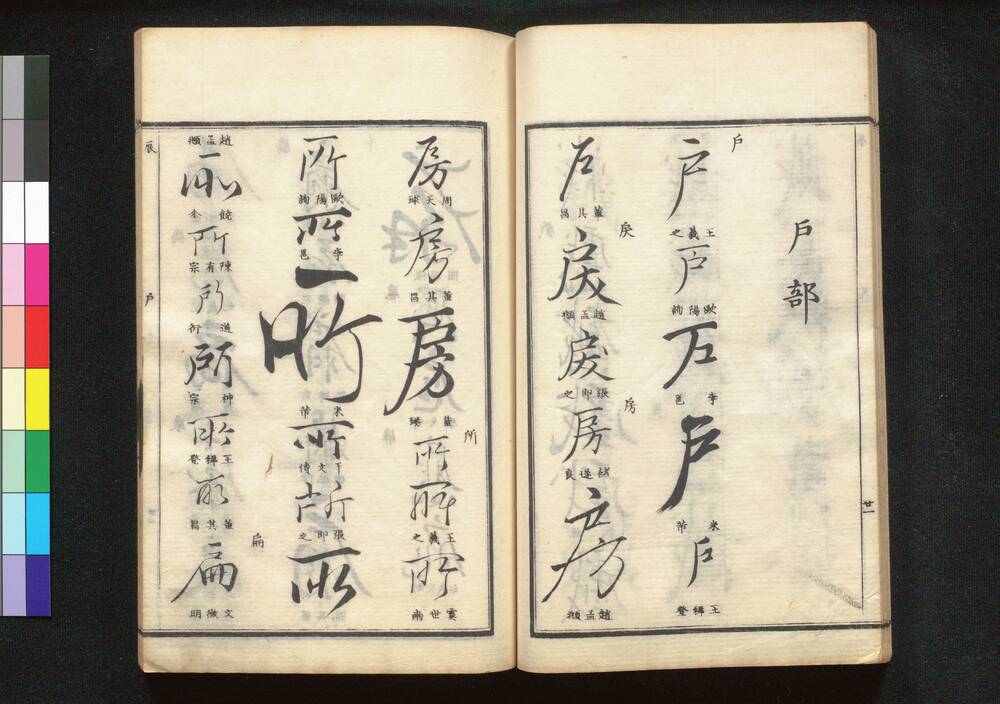 戶部
戶
戶
王羲之
戶
歐陽詢
戶
李邕
戶
米芾
戶
王穉登
戶
董其昌
戾
戾
趙孟頫
戾
張即之
房
房
褚遂良
房
趙孟頫
廿一
房
周天球
房
董其昌
房
董
所
所
所
王羲之
所
虞世南
所
歐陽詢
所
李邕
所
米芾
所
張即之
所
所
趙孟頫
所
所
陳有宗
所
所
所
王穉登
所
董其昌
扁
扁
文徵明
戶